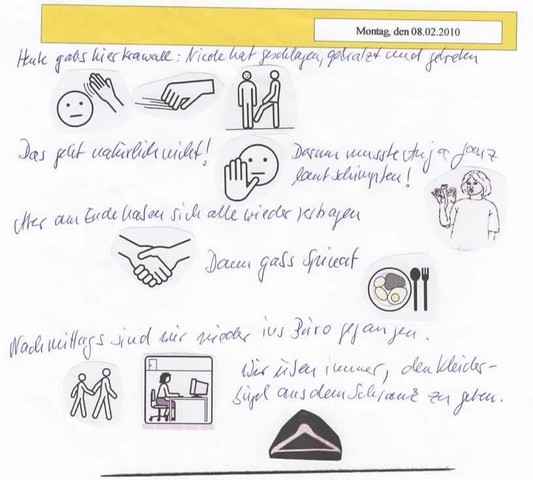 Montag, den 08.02.2010
Heute gabs hier Krawall: Nicole hat geschlagen, gekratzt und getreten
Das geht natürlich nicht!
Darum musste Anja ganz
laut schimpfen!
Aber am Ende haben sich alle wieder vertragen
Dann gabs Spinat
Nachmittags sind wir wieder ins Büro gegangen.
Wir üben immer, den Kleider-
bügel aus dem Schrank zu geben.